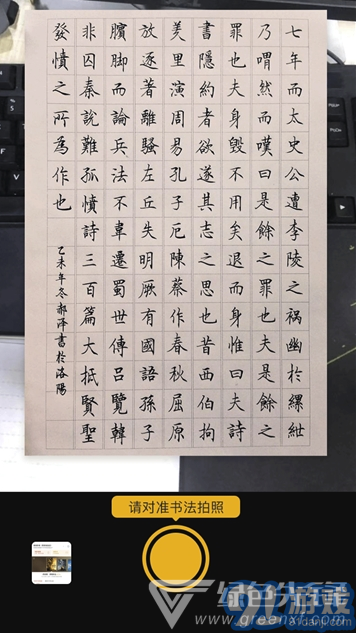 七年而太史公遭李陵之祸幽於縲紲
乃喟然而嘆曰是餘之罪也夫是餘之
罪也夫身毀不用矣退而身惟曰夫詩
書隱約者欲遂其志之思也昔西伯拘
羑里演周易孔子厄陳蔡作春秋屈原
放逐著離騷左丘失明厥有國語孫子
臏脚而論兵法不韋遷蜀世傳吕覽韓
非囚秦說難孤憤詩三百篇大抵賢聖
發憤之所為作也
乙未年冬郝泽書於洛陽
请对准书法拍照